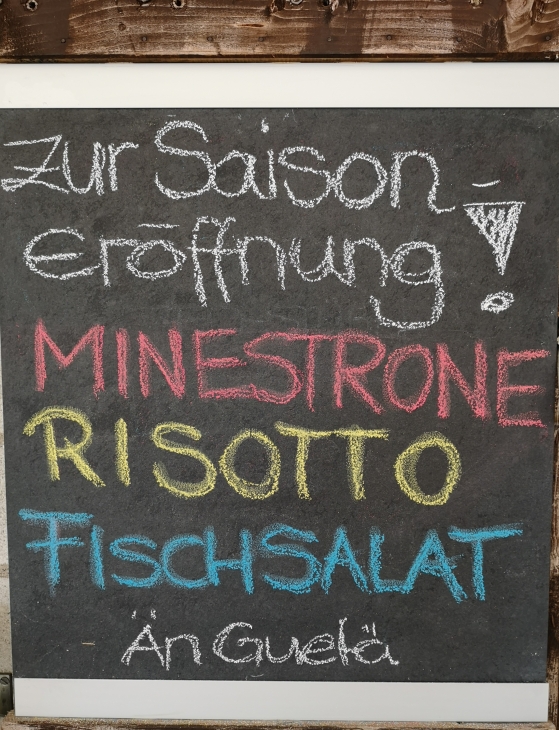 Zur Saison-
eröffnung!
MINESTRONE
RISOTTO
FISCHSALAT
Än Guetä